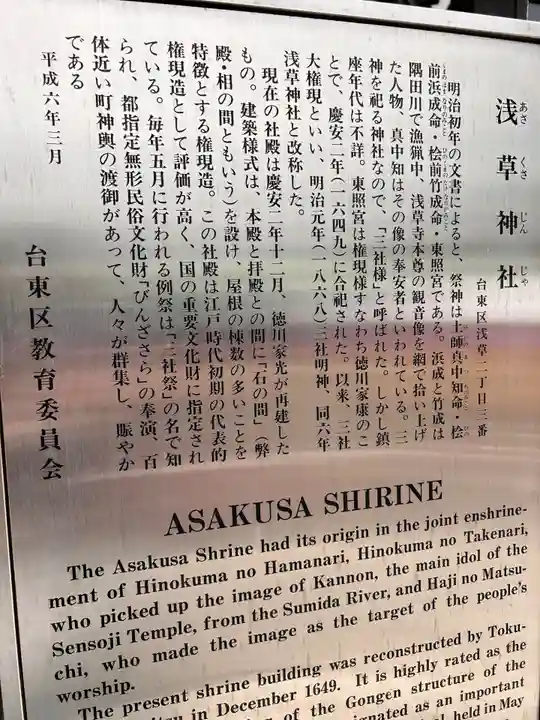 浅草神社
あさくさじんじゃ
台東区浅草二丁目三番
明治初年の文書によると、祭神は土師真中知命・桧
前浜成命・桧前竹成命・東照宮である。浜成と竹成は
隅田川で漁猟中、浅草寺本尊の観音像を網で拾い上げ
た人物、真中知はその像の奉安者といわれている。三
神を祀る神社なので、「三社様」と呼ばれた。しかし鎮
座年代は不詳。東照宮は権現様すなわち徳川家康のこ
とで、慶安二年(一六四九)に合祀された。以来、三社
大権現といい、明治元年(一八六八)三社明神、同六年
浅草神社と改称した。
現在の社殿は慶安二年十二月、徳川家光が再建した
もの。建築様式は、本殿と拝殿との間に「石の間」(弊
殿・相の間ともいう)を設け、屋根の棟数の多いことを
特徴とする権現造。この社殿は江戸時代初期の代表的
権現造として評価が高く、国の重要文化財に指定され
ている。毎年五月に行われる例祭は「三社祭」の名で知
られ、都指定無形民俗文化財「びんざさら」の奉演、百
体近い町神輿の渡御があって、人々が群集し、賑やか
である
平成六年三月
台東区教育委員会
ASAKUSA SHIRINE
The Asakusa Shrine had its origin in the joint enshrine-
ment of Hinokuma no Hamanari, Hinokuma no Takenari,
who picked up the image of Kannon, the main idol of the
Sensoji Temple, from the Sumida River, and Haji no Matsu-
chi, who made the image as the target of the people's
worship.
The present shrine building was reconstructed by Toku-
in December 1649. It is highly rated as the
of the Gongen structure of the
as an important
held in May